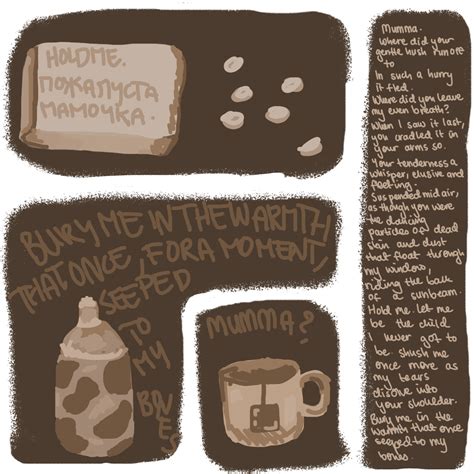 HOLD ME.
ПОЖАЛУСТА
МАМОЧКА.
BURY ME IN THE WARMTH
THAT ONCE, FOR A MOMENT,
SEEPED
TO
MY
BONES
MUMMA?
Mumma.
Where did your
gentle hush run off
to
In such a hurry
it fled.
Where did you leave
my even breath?
When I saw it last,
you cradled it in
your arms so.
Your tenderness a
whisper, elusive and
fleeting.
Suspended mid air,
as though you were
the dancing
particles of dead
skin and dust
that float through
my window,
riding the back
of a sunbeam.
Hold me. let me
be the child
I never got to
be. shush me
once more as
my tears
disolve into
your shoulder.
Bury me in the
warmth that once
seeped to my
bones.